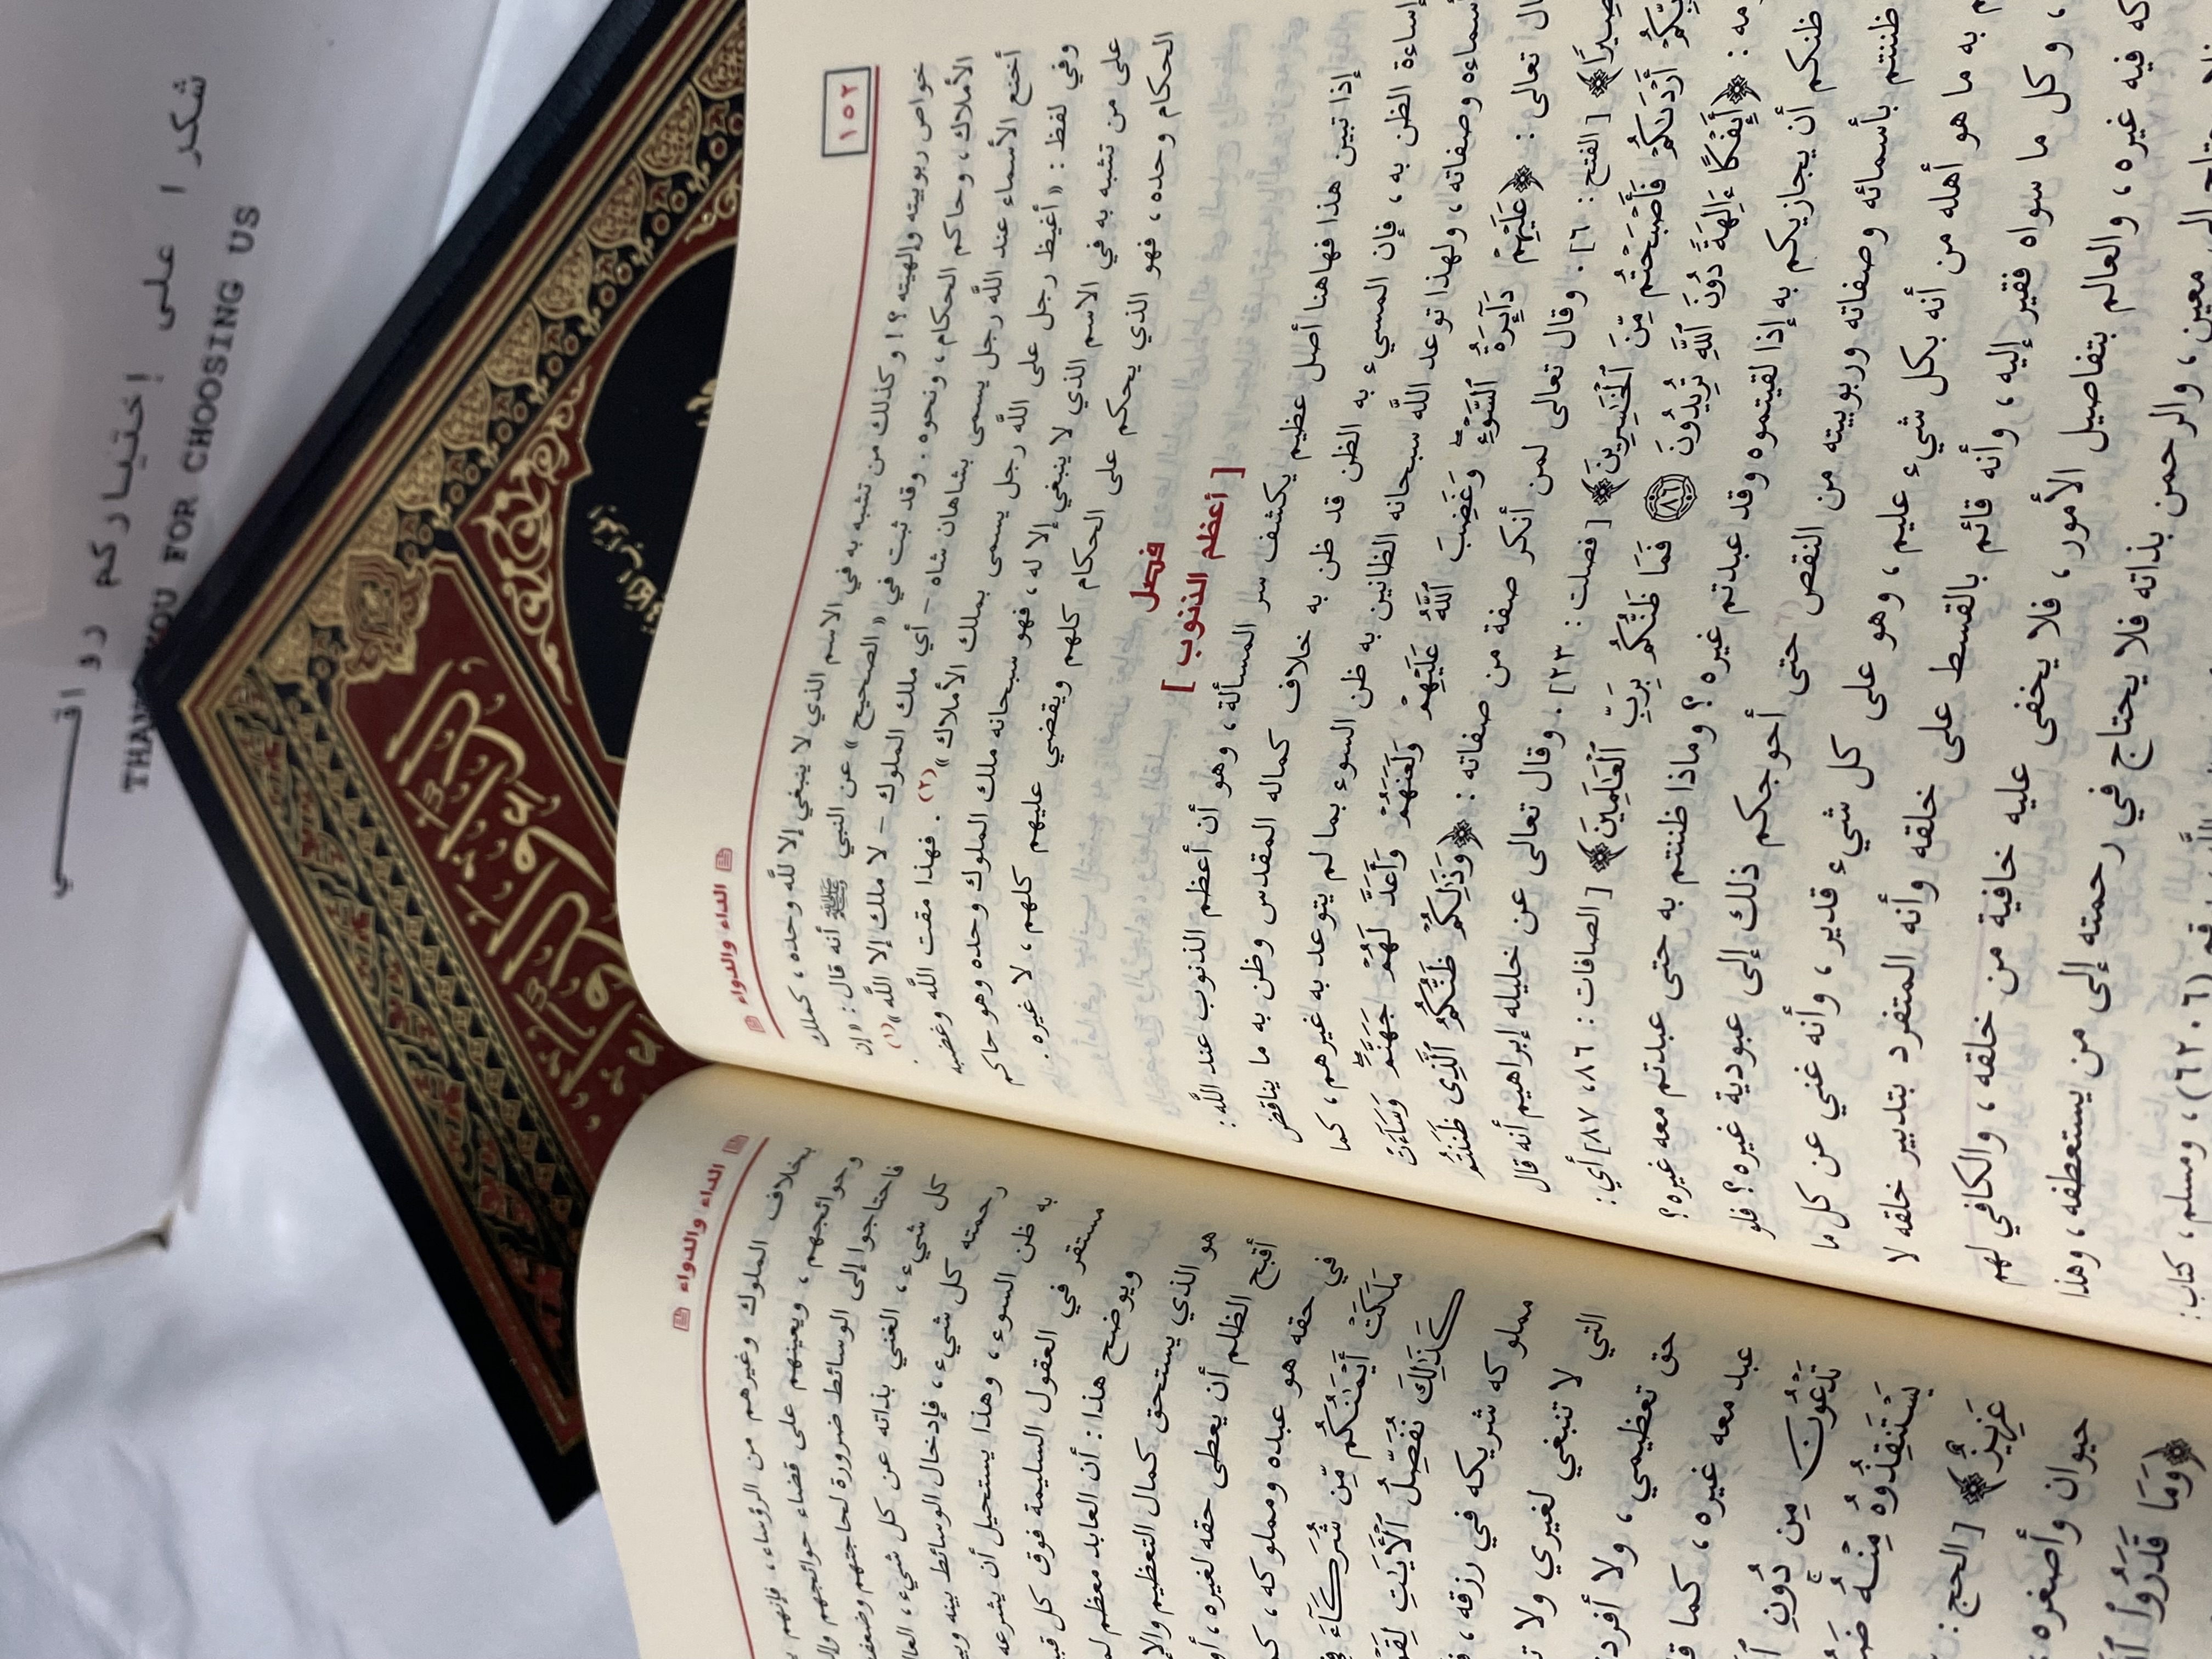 شكرا على إختياركم رواقـــــــي
THANK YOU FOR CHOOSING US
الداء والدواء
١٥٢
خواص ربوبيته وإلهيته؟! وكذلك من تشبه به في الاسم الذي لا ينبغي إلا لله وحده، كملك
الأملاك، وحاكم الحكام، ونحوه. وقد ثبت في «الصحيح» عن النبي ﷺ أنه قال: «إن
أخنع الأسماء عند الله رجل يسمى بشاهان شاه - أي ملك الملوك - لا ملك إلا الله»(١)
وفي لفظ: «أغيظ رجل على الله رجل يسمى بملك الأملاك»(٢). فهذا مقت الله وغضبه
على من تشبه به في الاسم الذي لا ينبغي إلا له، فهو سبحانه ملك الملوك وحده وهو حاكم
الحكام وحده، فهو الذي يحكم على الحكام كلهم ويقضي عليهم كلهم، لا غيره.
فصل
[أعظم الذنوب]
إذا تبين هذا فهاهنا أصل عظيم يكشف سر المسألة، وهو أن أعظم الذنوب عند الله:
إساءة الظن به، فإن المسيء به الظن قد ظن به خلاف كماله المقدس وظن به ما يناقض
أسماءه وصفاته، ولهذا توعد الله سبحانه الظانين به ظن السوء بما لم يتوعد به غيرهم، كما
قال تعالى: ﴿عَلَيْهِمْ دَآئِرَةُ ٱلسَّوْءِ وَغَضِبَ ٱللَّهُ عَلَيْهِمْ وَلَعَنَهُمْ وَأَعَدَّ لَهُمْ جَهَنَّمَ وَسَآءَتْ
مَصِيرًا﴾ [الفتح: ٦]. وقال تعالى لمن أنكر صفة من صفاته: ﴿وَذَٰلِكُمْ ظَنُّكُمُ ٱلَّذِى ظَنَنتُم
بِرَبِّكُمْ أَرْدَىٰكُمْ فَأَصْبَحْتُم مِّنَ ٱلْخَٰسِرِينَ﴾ [فصلت: ٢٣]. وقال تعالى عن خليله إبراهيم أنه قال
لقومه: ﴿أَئِفْكًا ءَالِهَةً دُونَ ٱللَّهِ تُرِيدُونَ ٨٦ فَمَا ظَنُّكُم بِرَبِّ ٱلْعَٰلَمِينَ﴾ [الصافات: ٨٦، ٨٧] أي:
ظنكم أن يجازيكم به إذا لقيتموه وقد عبدتم غيره؟ وماذا ظننتم به حتى عبدتم معه غيره؟
ظننتم بأسمائه وصفاته وربوبيته من النقص حتى أحوجكم ذلك إلى عبودية غيره؟ فلو
به ما هو أهله من أنه بكل شيء عليم، وهو على كل شيء قدير، وأنه غني عن كل ما
، وكل ما سواه فقير إليه، وأنه قائم بالقسط على خلقه وأنه المتفرد بتدبير خلقه لا
كه فيه غيره، والعالم بتفاصيل الأمور، فلا يخفى عليه خافية من خلقه، والكافي لهم
معين، والرحمن بذاته فلا يحتاج في رحمته إلى من يستعطفه، وهذا
(٦٢٠٦)، ومسلم، كتاب:
الداء والدواء
بخلاف الملوك وغيرهم من الرؤساء، فإنهم
وحوائجهم، ويعينهم على قضاء حوائجهم
فاحتاجوا إلى الوسائط ضرورة لحاجتهم
كل شيء، الغني بذاته عن كل شيء،
رحمته كل شيء، فإدخال الوسائط بينه
به ظن السوء، وهذا يستحيل أن يشرعه
مستقر في العقول السليمة فوق كل
ويوضح هذا: أن العابد معظم
هو الذي يستحق كمال التعظيم
أقبح الظلم أن يعطى حقه لغيره،
في حقه هو عبده ومملوكه،
مَلَكَتْ أَيْمَٰنُكُم مِّن شُرَكَآءَ
كَذَٰلِكَ نُفَصِّلُ ٱلْأَيَٰتِ
مملوكه شريكه في رزقه،
التي لا تنبغي لغيري ولا
حق تعظيمي، ولا
عبد معه غيره، كما
تَدْعُونَ مِن دُونِ
يَسْتَنقِذُوهُ مِنْهُ
عَزِيزٌ﴾ [الحج:
حيوان وأصغره
﴿وَمَا قَدَرُوا۟